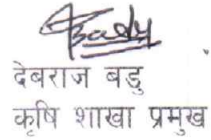 देबराज बडु
कृषि शाखा प्रमुख